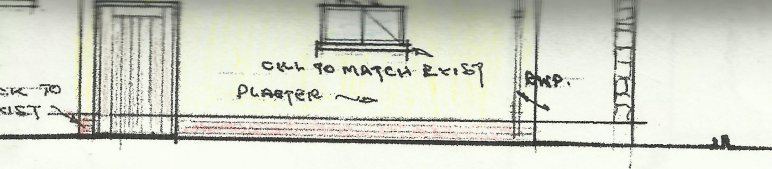 CILL TO MATCH EXIST
RWP.
PLASTER
CK TO
XIST